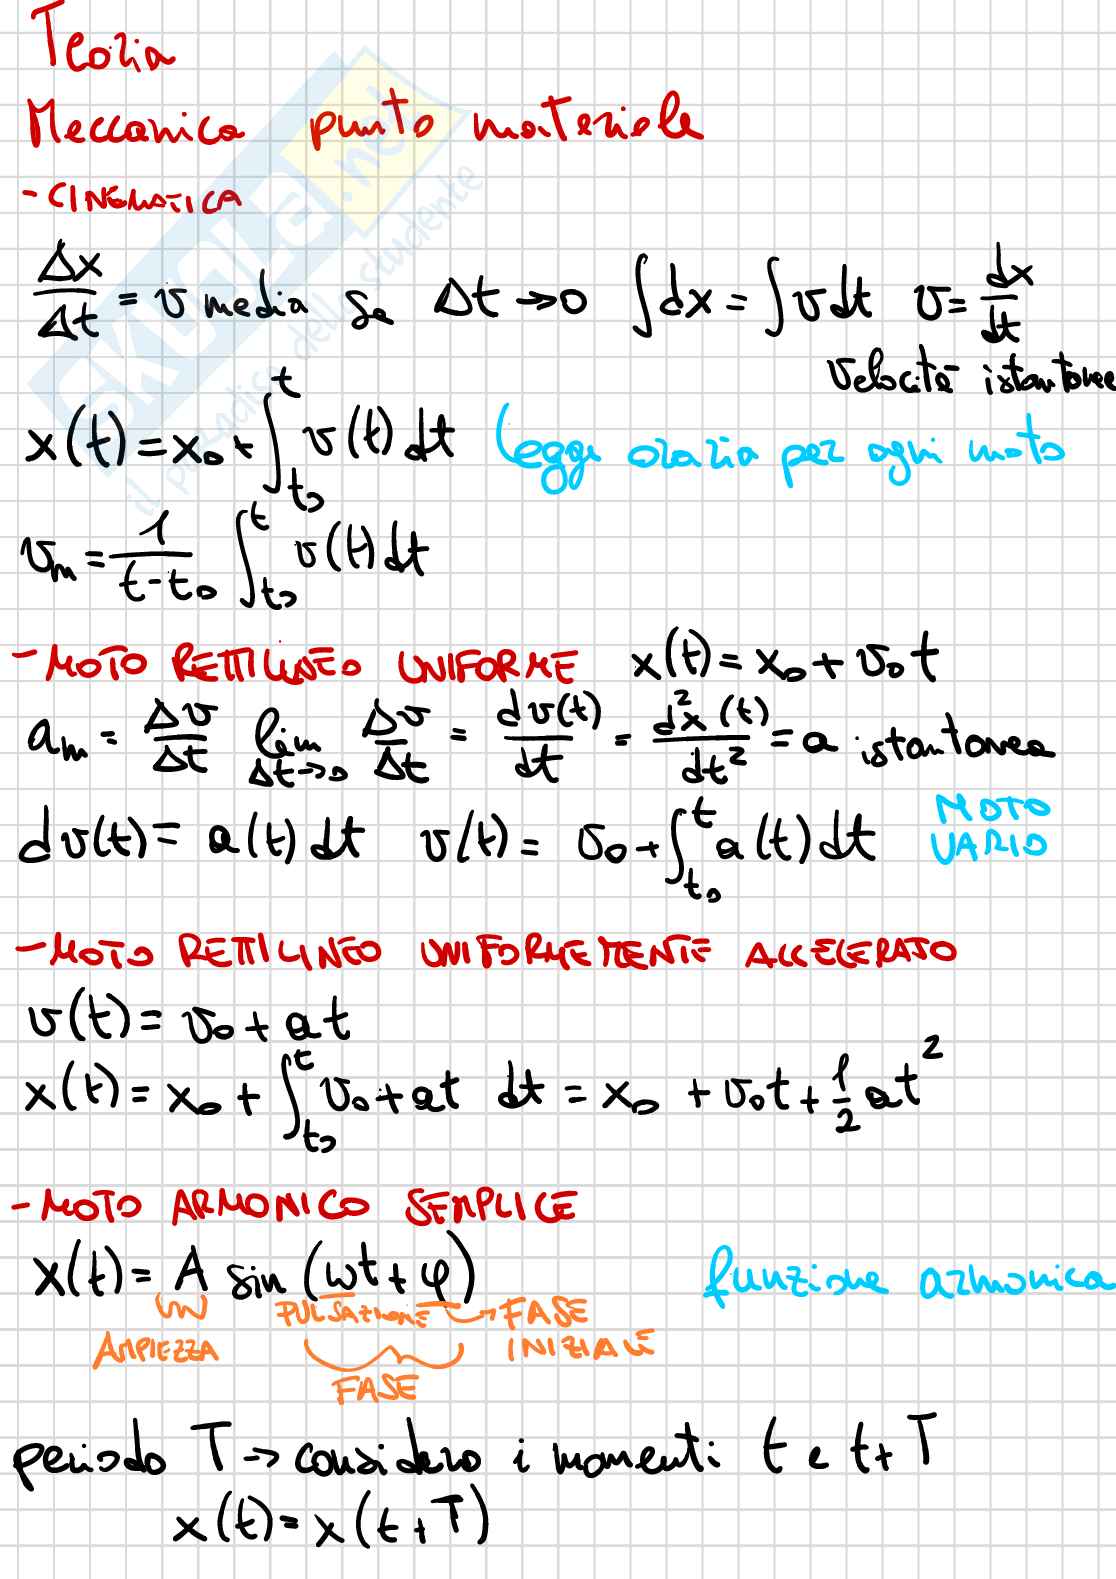 Teoria
Meccanica punto materiale
- CINEMATICA
Δx/Δt = v media se Δt → 0 ∫dx = ∫v dt v = dx/dt
velocità istantanea
x(t) = x₀ + ∫_{t₀}^{t} v(t) dt legge oraria per ogni moto
v_m = 1/(t - t₀) ∫_{t₀}^{t} v(t) dt
- MOTO RETTILINEO UNIFORME x(t) = x₀ + v₀ t
a_m = Δv/Δt lim_{Δt→0} Δv/Δt = dv(t)/dt = d²x(t)/dt² = a istantanea
dv(t) = a(t) dt v(t) = v₀ + ∫_{t₀}^{t} a(t) dt MOTO VARIO
- MOTO RETTILINEO UNIFORMEMENTE ACCELERATO
v(t) = v₀ + at
x(t) = x₀ + ∫_{t₀}^{t} v₀ + at dt = x₀ + v₀t + 1/2 at²
- MOTO ARMONICO SEMPLICE
x(t) = A sin (ωt + φ) funzione armonica
AMPIEZZA PULSAZIONE → FASE INIZIALE
FASE
periodo T → considero i momenti t e t + T
x(t) = x(t + T)
SKUOLA.net
il paradiso dello studente